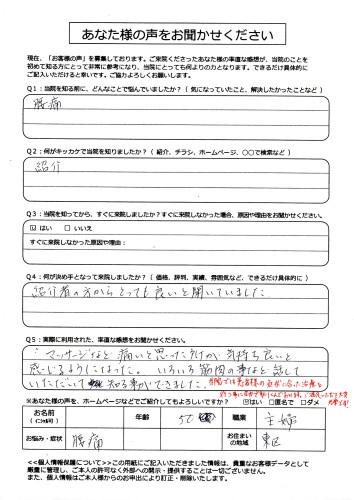 あなた様の声をお聞かせください
現在、「お客様の声」を募集しております。ご来院くださったあなた様の率直な感想が、当院のことを
初めて知る方にとって非常に参考になり、当院にとっても何よりの力となります。できるだけ具体的に
ご記入いただけると幸いです。ご協力よろしくお願いします。
Q1：当院を知る前に、どんなことで悩んでいましたか？（気になっていたこと、解決したかったことなど）
腰痛
Q2：何がキッカケで当院を知りましたか？（紹介、チラシ、ホームページ、○○で検索など）
紹介
Q3：当院を知ってから、すぐに来院しましたか？すぐに来院しなかった場合、原因や理由をお聞かせください。
☑ はい　□ いいえ
すぐに来院しなかった原因や理由：
Q4：何が決め手となって来院しましたか？（価格、評判、実績、雰囲気など、できるだけ具体的に）
紹介者の方からとっても良いと聞いていました
Q5：実際に利用された、率直な感想をお聞かせください。
マッサージなど痛いと思ったけが気持ち良いと
感じるようになった。いろいろ筋肉の事など話して
いただいて知る事ができました。当院では患者様の症状に合った治療を
※あなた様の声を、ホームページなどでご紹介してもよろしいですか？ ☑はい □匿名で □ダメ
お名前 年齢 50 職業 主婦
お悩み・症状 腰痛 お住まいの地域 東区
<<個人情報保護について>>この用紙にご記入いただきました情報は、貴重なお客様データとして
厳重に管理し、ご本人の許可なく外部への開示・提供することは一切ございません。
また、個人情報はご本人様からのお申出により訂正・削除いたします。